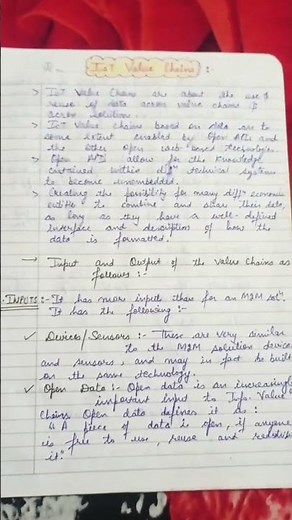 IoT Value Chains :-
> IoT Value Chains are about the use &
reuse of data across value chains &
across solutions.
> IoT value chains based on data are to
some extent enabled by Open APIs and
the other open web-based technologies.
> Open APIs allow for the knowledge
contained within diffnt technical systems
to become unembedded.
> Creating the possibility for many diffnt economic
entities to combine and share their data,
as long as they have a well-defined
interface and description of how the
data is formatted.
→ Input and Output of the Value Chains as
follows :-
INPUTS :- It has more inputs than for an M2M soln.
It has the following :-
✓ Devices/Sensors :- These are very similar
to the M2M solution device
and sensors, and may in fact be built
on the same technology.
✓ Open Data :- Open data is an increasingly
important input to Info. Value
Chains. Open data defines it as :
"A piece of data is open, if anyone
is free to use, reuse and
it."